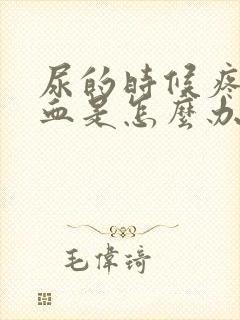 尿的時候疼
血是怎麼办
毛偉琦